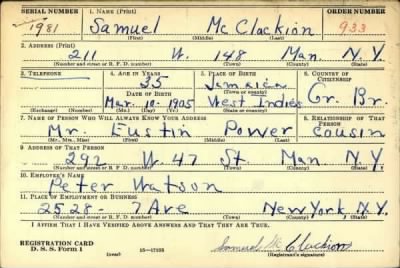 SERIAL NUMBER 1. NAME (Print) ORDER NUMBER
1981 Samuel McClackion 933
(First) (Middle) (Last)
2. ADDRESS (Print)
211 W. 148 Man. N.Y.
(Number and street or R. F. D. number) (Town) (County) (State)
3. TELEPHONE 4. AGE IN YEARS 5. PLACE OF BIRTH 6. COUNTRY OF CITIZENSHIP
35 Jamaica
DATE OF BIRTH (Town or county)
Mar. 10-1905 West Indies Gr. Br.
(Exchange) (Number) (Mo.) (Day) (Yr.) (State or country)
7. NAME OF PERSON WHO WILL ALWAYS KNOW YOUR ADDRESS 8. RELATIONSHIP OF THAT PERSON
Mr. Eustin Power cousin
(Mr., Mrs., Miss) (First) (Middle) (Last)
9. ADDRESS OF THAT PERSON
292 W. 47 St. Man. N.Y.
(Number and street or R. F. D. number) (Town) (County) (State)
10. EMPLOYER'S NAME
Peter Watson
11. PLACE OF EMPLOYMENT OR BUSINESS
2528- 7 Ave New York, N.Y.
(Number and street or R. F. D. number) (Town) (County) (State)
I AFFIRM THAT I HAVE VERIFIED ABOVE ANSWERS AND THAT THEY ARE TRUE.
REGISTRATION CARD
D. S. S. Form 1 (over) Samuel McClackion
(Registrant's signature)